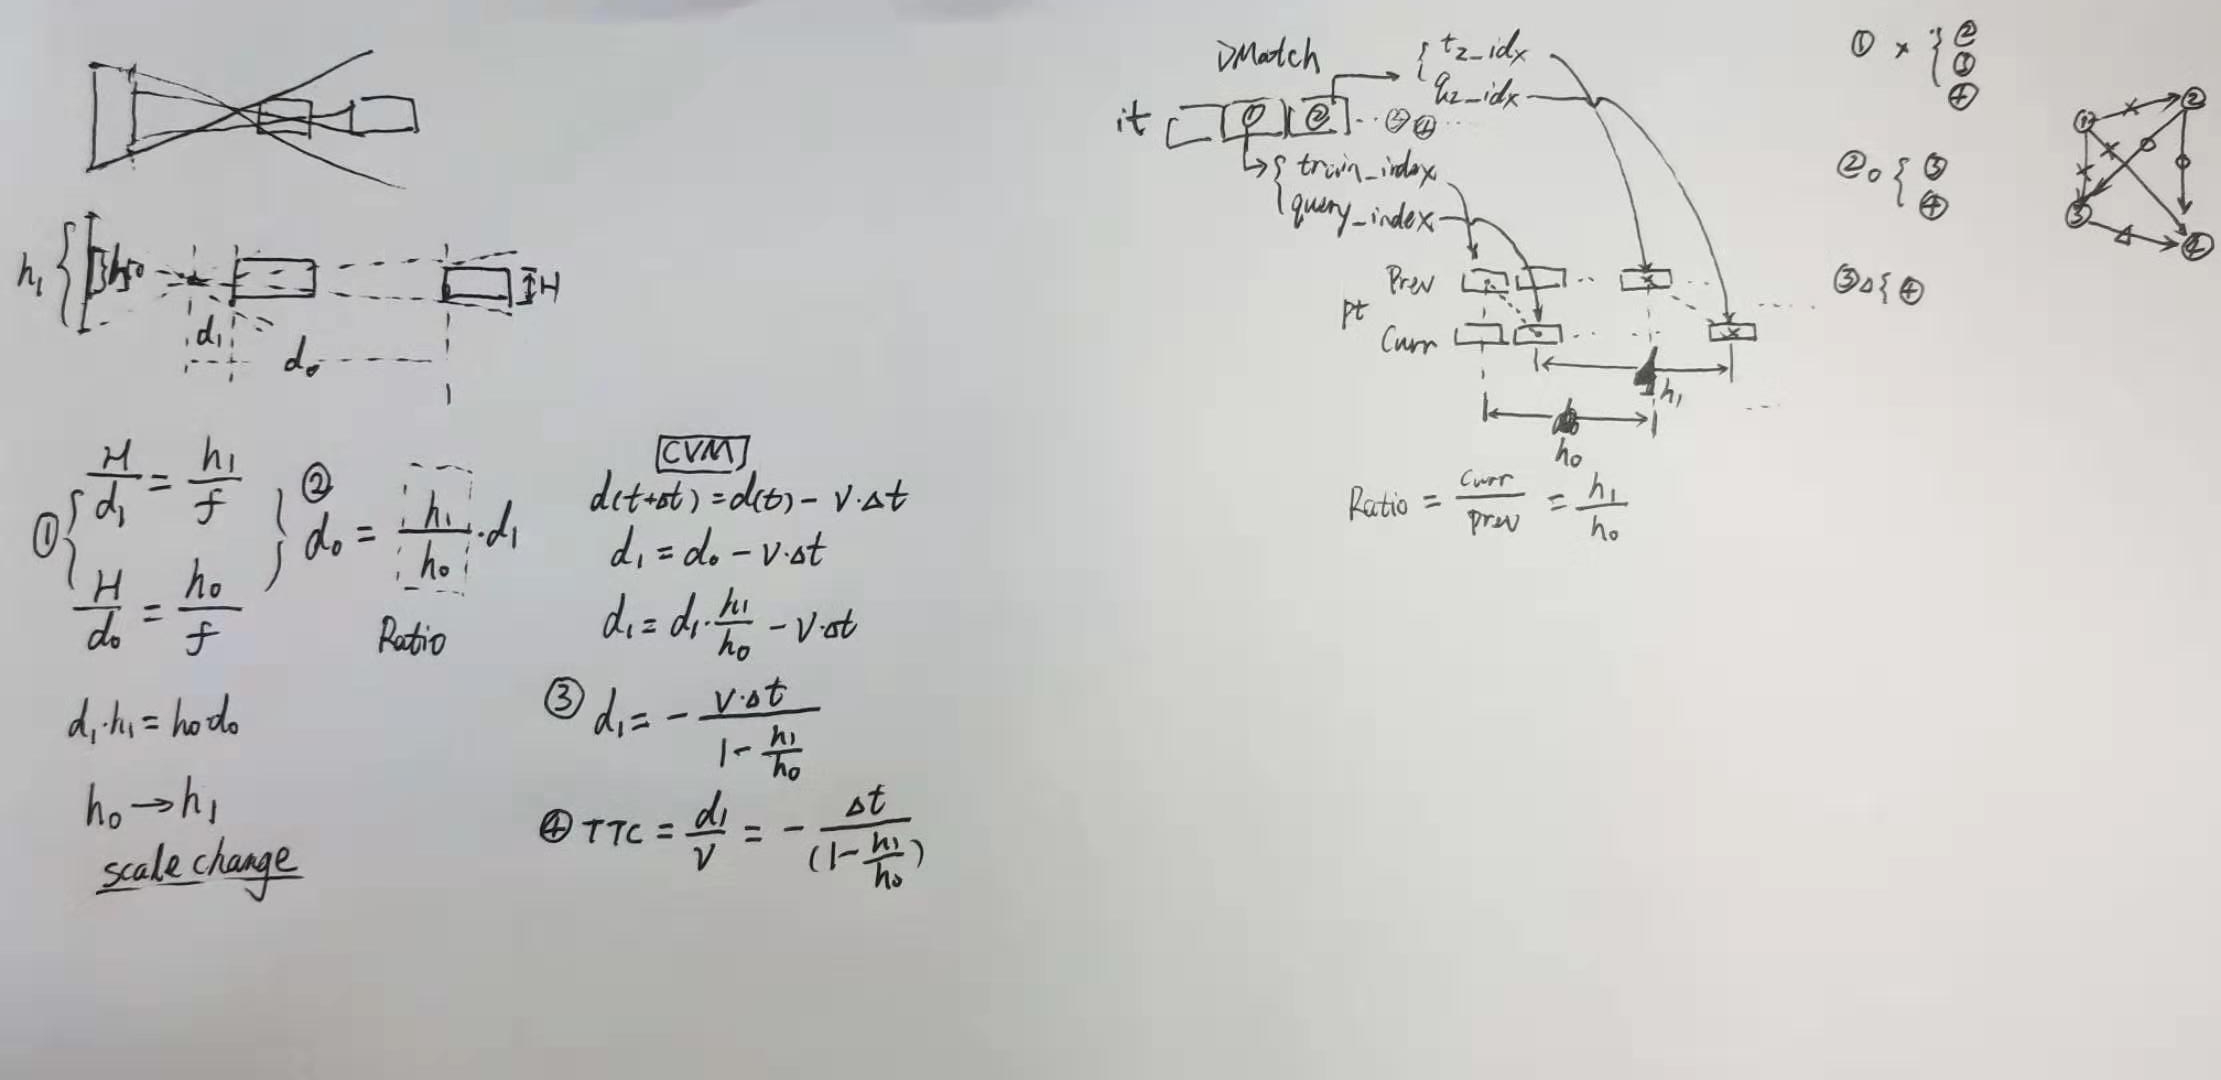 h₁
h₀
H
d₁
d₀
① { H/d₁ = h₁/f
H/d₀ = h₀/f }
② d₀ = h₁/h₀ · d₁
Ratio
d₁·h₁ = h₀d₀
h₀ → h₁
scale change
CVM
d(t+Δt) = d(t) - V·Δt
d₁ = d₀ - V·Δt
d₁ = d₁· h₁/h₀ - V·Δt
③ d₁ = - V·Δt / (1 - h₁/h₀)
④ TTC = d₁/V = - Δt / (1 - h₁/h₀)
DMatch
{ t2_idx
q2_idx
it
① ② ·· ③ ④ ···
{ train_index
query_index
Prev
pt
Curr
h₁
h₀
Ratio = Curr/Prev = h₁/h₀
① × { ②
③
④
② o { ③
④
③ Δ { ④
① × ②
× × o o
③ Δ ④